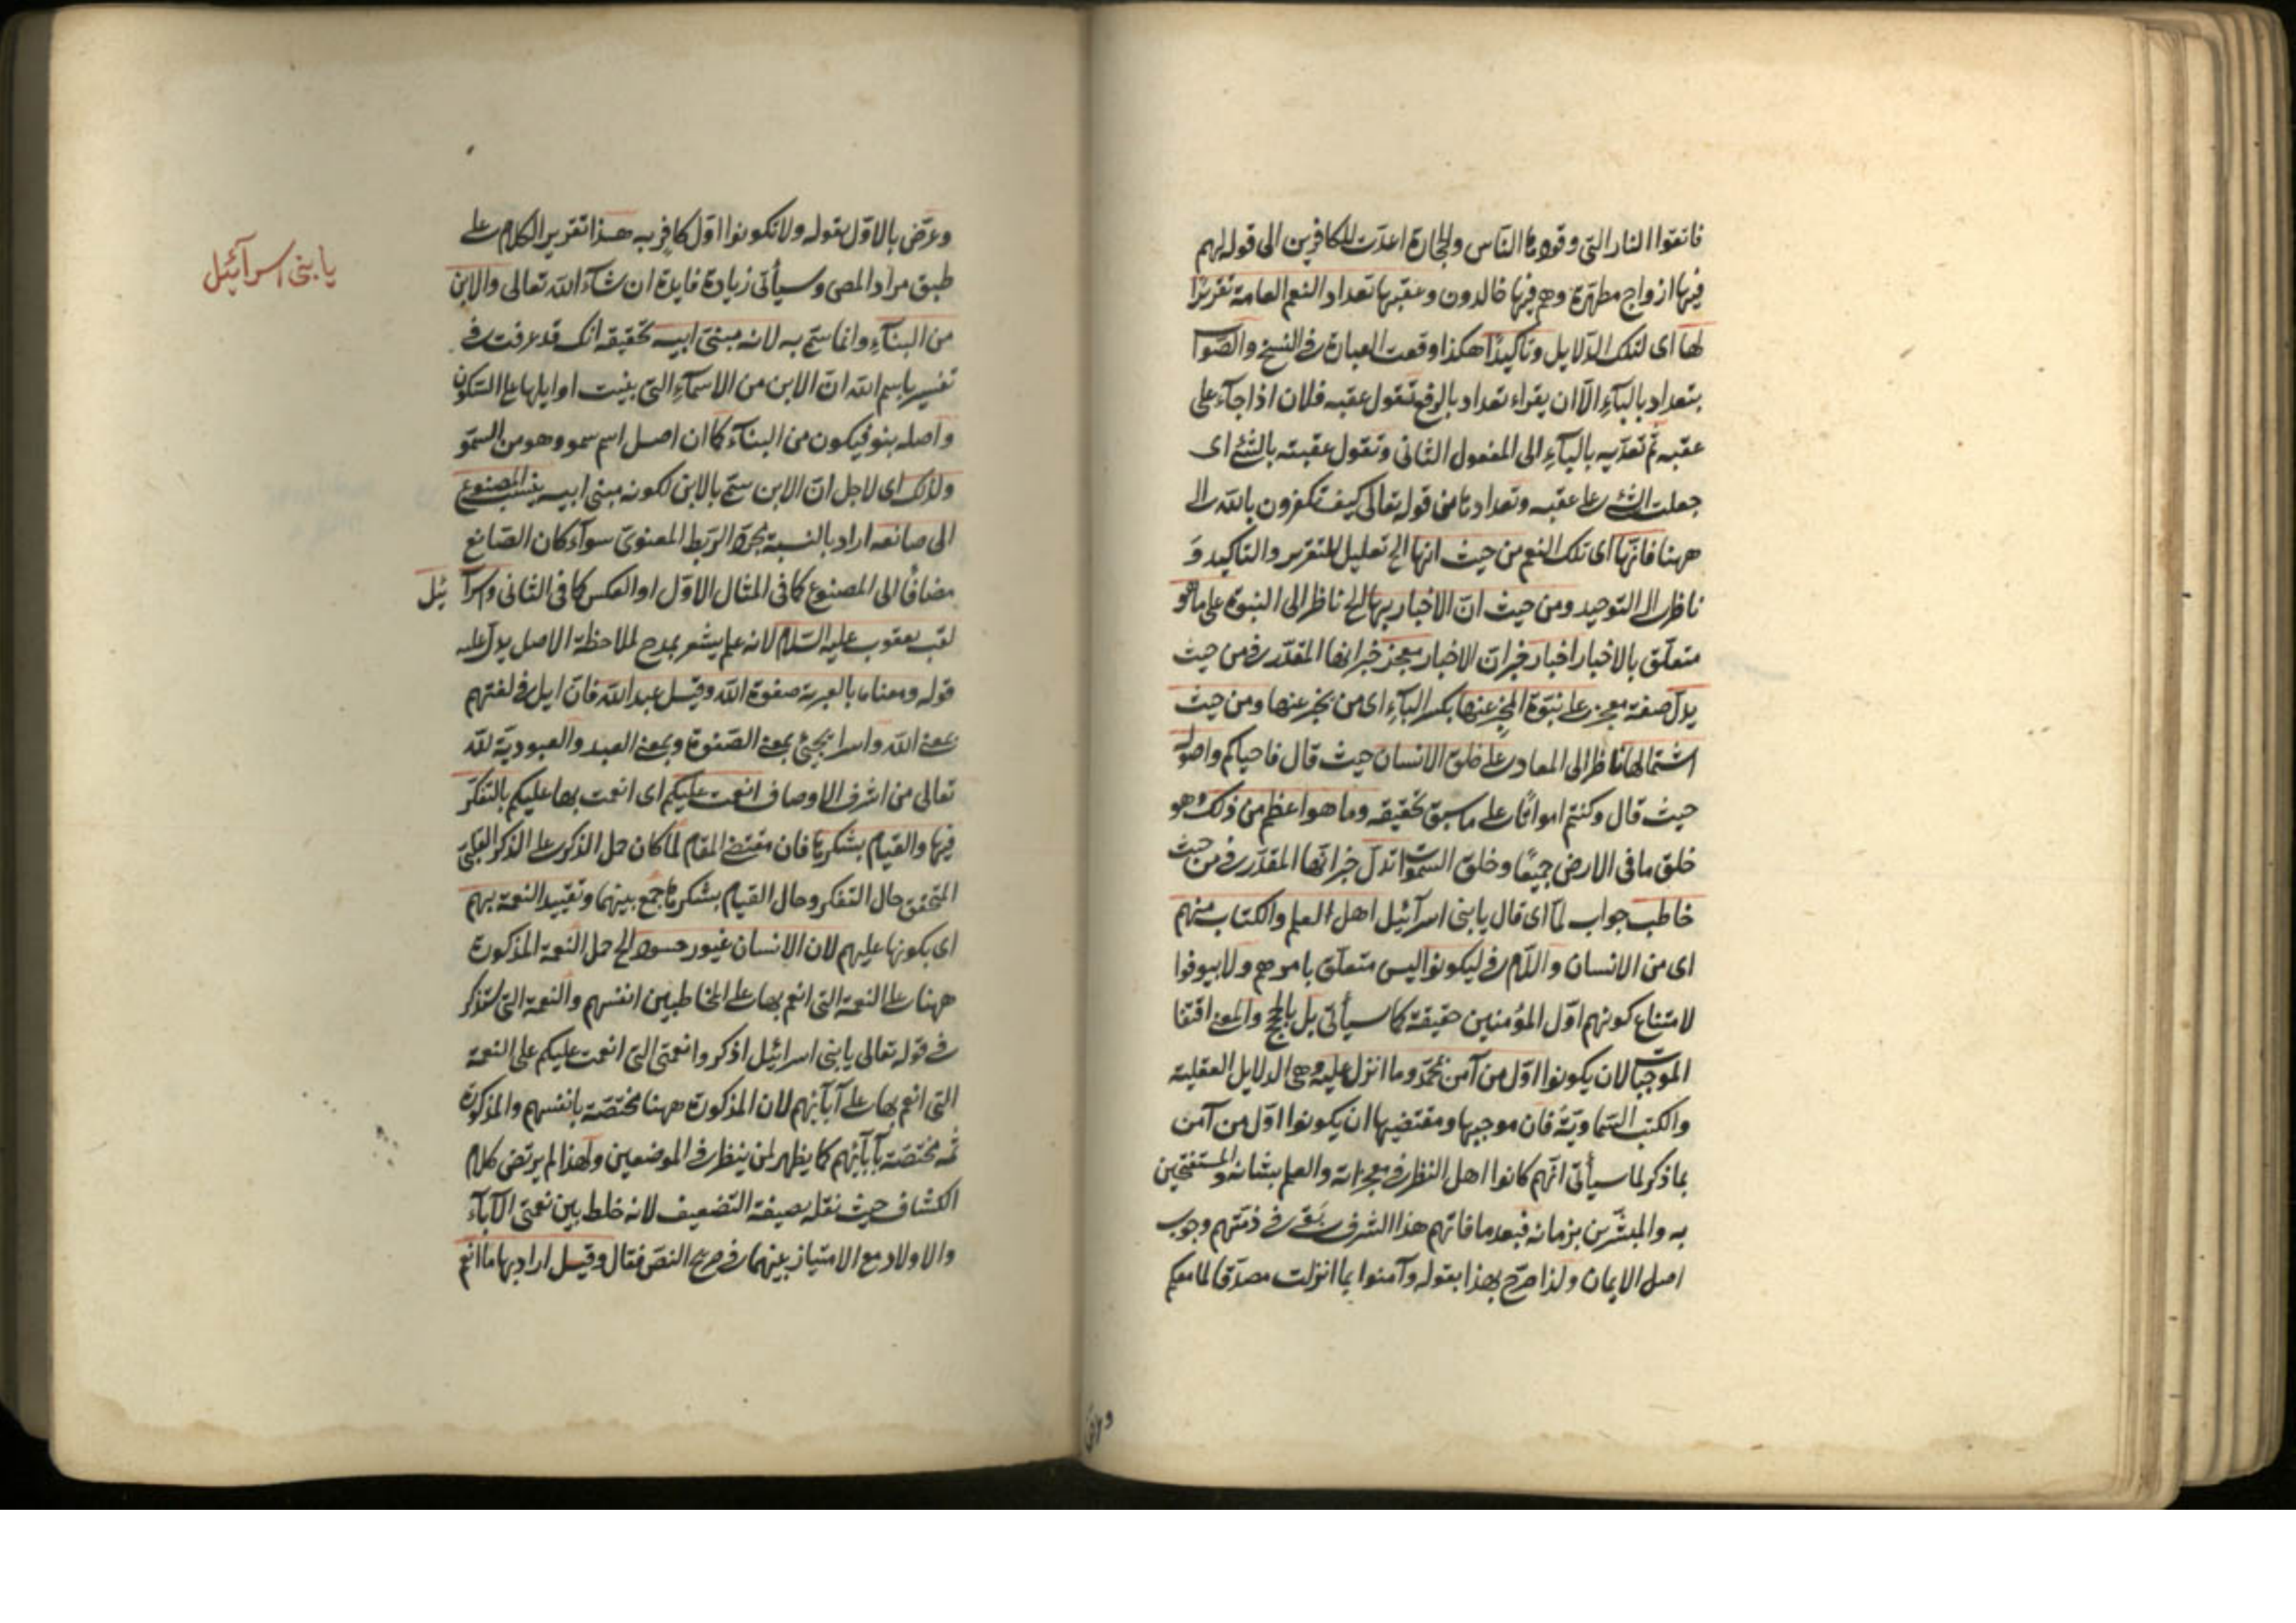 فاتقوا النار التى وقودها الناس والحجارة اعدّت للكافرين الى قوله لهم
فيها ازواج مطهّرة وهم فيها خالدون وعقّبها تعداد النعم العامة تقريرًا
لها اى لتلك الدّلايل وتأكيدًا هكذا وقعت العبارة فى النسخ والصّواب
بتعداد بالبآءِ الّا ان يقراء تعداد بالرفع تقول عقبه فلان اذا جآء على
عقبه ثم تعدّيه بالبآءِ الى المفعول الثانى وتقول عقبته بالشّئ اى
جعلت الشّئ على عقبه وتعدادها من قوله تعالى كيف تكفرون بالله الى
ههنا فانّها اى تلك النعم من حيث انها الخ تعليل للتقرير والتاكيد وَ
ناظر الى التوحيد ومن حيث انّ الاخبار بها الخ ناظر الى النبوة على ما هو
متعلّق بالاخبار اخبار خبر انّ الاخبار معجز خبر انها المقدّر فى من حيث
يدلّ صفة معجز على نبّوة المخبِر عنها بكسر البآءِ اى من يخبر عنها ومن حيث
اشتمالها ناظر الى المعاد على خلق الانسان حيث قال فاحياكم واصوله
حيث قال وكنتم امواتًا على ما سبق تحقيقه وما هو اعظم من ذلك وهو
خلق ما فى الارض جميعًا وخلق السّموات تدلّ خبر انّها المقدّر فى من حيث
خاطب جواب لمّا اى قال يا بنى اسرآئيل اهل العلم والكتاب منهم
اى من الانسان واللّام فى ليكونوا ليس متعلّق بامرهم ولا بيوفوا
لامتناع كونهم اوّل المؤمنين حقيقة كما سيأتى بل بالحجج والمعنى اقتفا
الموجبات لان يكونوا اوّل من آمن بمحمّد وما انزل عليه وهى الدلايل العقلية
والكتب السّماويّة فان موجبها ومقتضيها ان يكونوا اوّل من آمن
بما ذكر لما سيأتى انّهم كانوا اهل النظر فى معجزاته والعلم بشانه والمستفتحين
به والمبشّرين بزمانه فبعد ما فاتهم هذا الشرف بَقِىَ فى ذمّتهم وجوب
اصل الايمان ولذا صرّح بهذا بقوله وآمنوا بما انزلت مصدّقا لما معكم
وعرّض بالاوّل بقوله ولا تكونوا اوّل كافرٍ به هذا تقرير الكلام على
طبق مراد المص وسيأتى زيادة فايدة ان شآء الله تعالى والابن
من البنآءِ وانما سمّى به لانه مبنىّ ابيه تحقيقه انك قد عرفت فى
تفسير باسم الله انّ الابن من الاسمآءِ التى بنيت اوايلها على السّكون
واصله بنو فيكون من البنآءَ كما ان اصل اسم سمو وهو من السموّ
ولذلك اى لاجل انّ الابن سمّى بالابن لكونه مبنى ابيه ينسب المصنوع
الى صانعه اراد بالنسبة مجرّد الرّبط المعنوىّ سوآء كان الصّانع
مضافًا الى المصنوع كما فى المثال الاوّل او العكس كما فى الثانى واسرآئيل
لقب يعقوب عليه السّلام لانه علم يشعر بمدح لملاحظة الاصل يدلّ عليه
قوله ومعناه بالعبرية صفوة الله وقيل عبد الله فانّ ايل فى لغتهم
بمعنى الله واسرا يجئ بمعنى الصّفوة وبمعنى العبد والعبوديّة لله
تعالى من اشرف الاوصاف انعمت عليكم اى انعمت بها عليكم بالتفكّر
فيها والقيام بشكرها فان مقتضى المقام لمّا كان حمل الذّكر على الذكر القلبىّ
المتحقق حال التفكر وحال القيام بشكرها جمع بينهما وتقييد النعمة بهم
اى بكونها عليهم لان الانسان غيور حسود الخ حمل النعمة المذكورة
ههنا على النعمة التى انعم بها على المخاطبين انفسهم والنعمة التى ستذكر
فى قوله تعالى يا بنى اسرائيل اذكروا نعمتى التى انعمت عليكم على النعمة
التى انعم بها على آبآئهم لان المذكورة ههنا مختصّة بانفسهم والمذكورة
ثمّه مختصّة بآبآئهم كما يظهر لمن ينظر فى الموضعين ولهذا لم يرتض كلام
الكشاف حيث نقله بصيغة التّضعيف لانه خلط بين نعمتى الآبآء
والاولاد مع الامتياز بينهما فى صريح النصّ فقال وقيل اراد بها ما انعم
يا بنى اسرآئيل